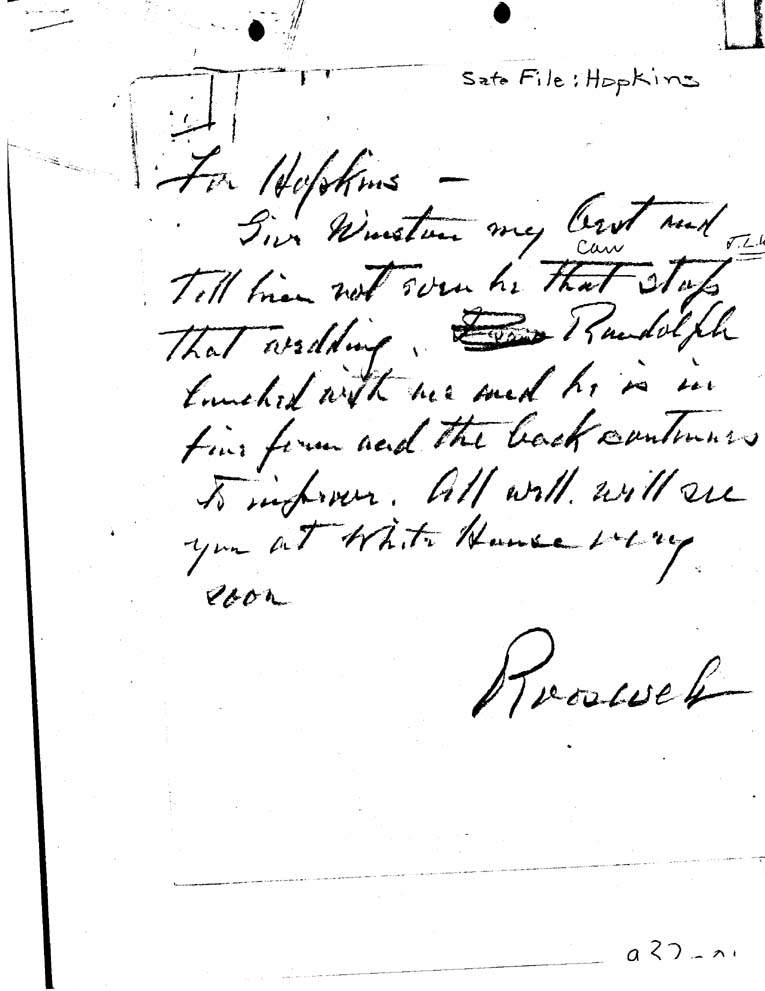 Safe File: Hopkins
For Hopkins —
Give Winston my best and
Tell him not even he can stop
that wedding. Randolph
lunched with me and he is in
fine form and the back continues
to improve. All well. will see
you at White House very
soon
Roosevelt